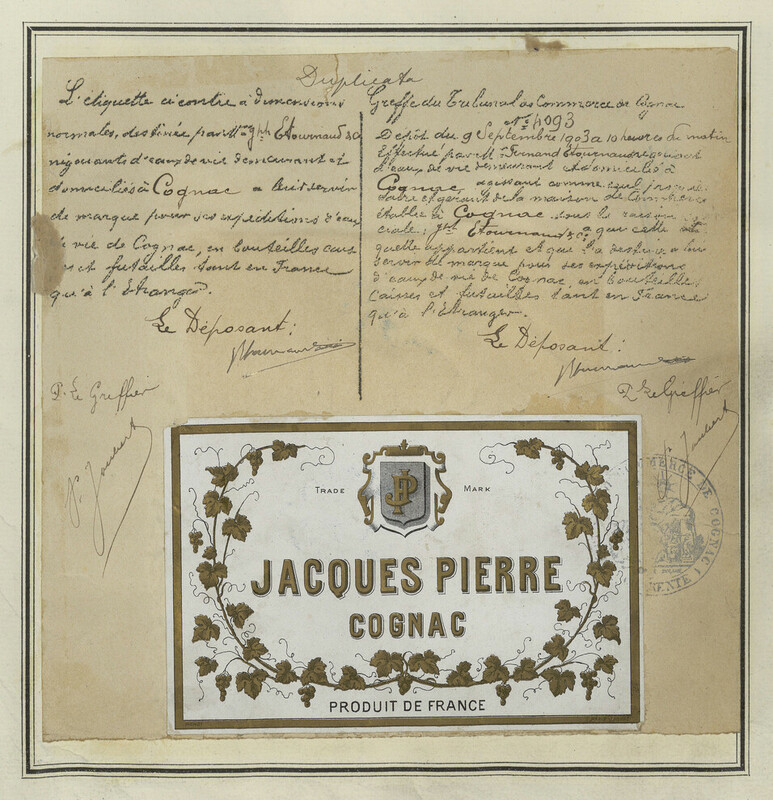 Duplicata
L'étiquette ci contre à dimensions
normales, destinée par Mrs Jph Etournaud & Co
négociants d'eaux de vie demeurant et
domiciliés à Cognac a leur servir
de marque pour ses expéditions d'eaux
de vie de Cognac, en bouteilles cais
ses et futailles tant en France
qu'à l'Etranger.
Le Déposant:
P. Le Greffier
P. Joubert
Greffe du Tribunal de Commerce de Cognac
No 4093
Dépôt du 9 Septembre 1903 à 10 heures du matin
Effectué par M. Fernand Etournaud négociant
d'eaux de vie demeurant et domicilié à
Cognac, agissant comme seul
et gérant de la maison de Commerce
établie à Cognac sous la raison so
ciale; Jph Etournaud & Co a qui cette éti
quette appartient et que l'a destinée a leur
servir de marque pour ses expéditions
d'eaux de vie de Cognac, en bouteilles
caisses et futailles tant en France
qu'à l'Etranger.
Le Déposant:
P. Le Greffier
P. Joubert
COMMERCE DE COGNAC
TRADE MARK
JP
JACQUES PIERRE
COGNAC
PRODUIT DE FRANCE